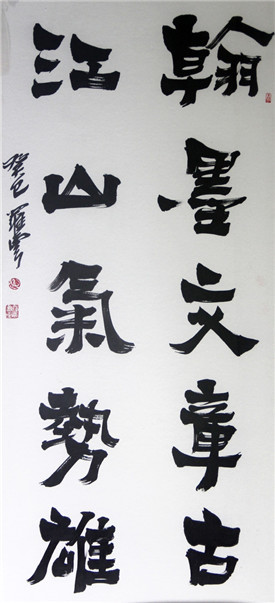 翰墨文章古
江山氣勢雄
癸巳